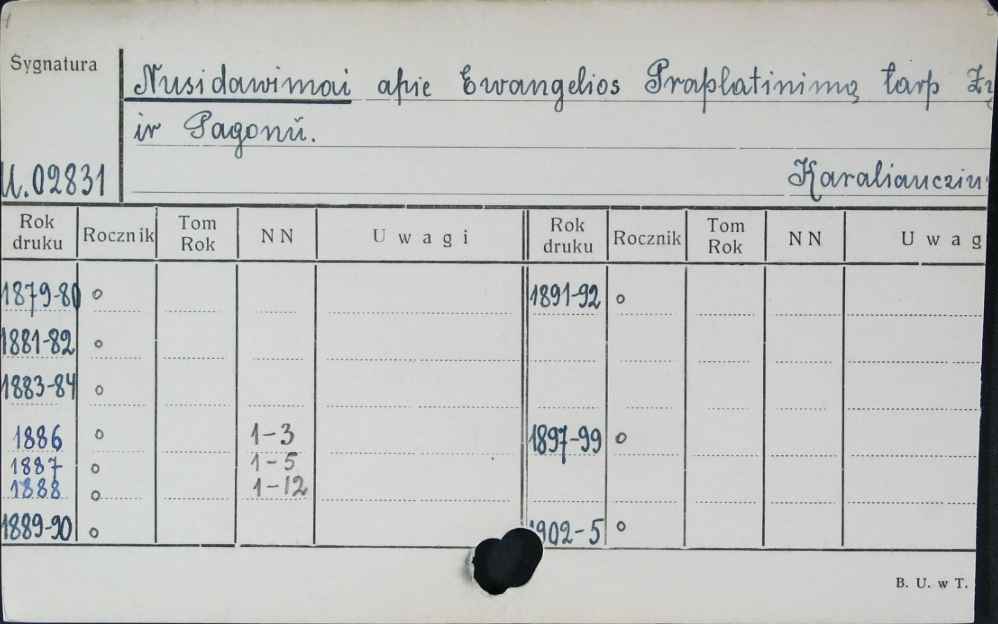 Sygnatura
Nusidawimai apie Ewangelios Praplatinimą tarp
ir Pagonū.
U.02831
Karaliaucziu
Rok druku Rocznik Tom Rok NN Uwagi Rok druku Rocznik Tom Rok NN Uwag
1879-80 o 1891-92 o
1881-82 o
1883-84 o
1886 o 1-3 1897-99 o
1887 o 1-5
1888 o 1-12
1889-90 o 1902-5 o
B. U. w T.